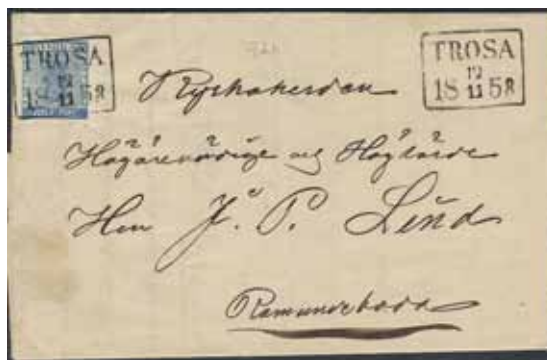 TROSA
19
18 11 58
TROSA
19
18 11 58
Kyrkoherden
Högärevördige och Höglärde
Herr J. P. Lind
Ramundeboda